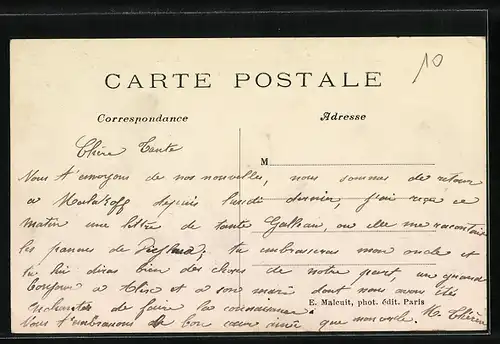 10
CARTE POSTALE
Correspondance
Adresse
Chère Tante
M
Nous t'envoyons de nos nouvelles, nous sommes de retour
à Malakoff depuis lundi dernier, j'ai reçu ce
matin une lettre de tante où elle me racontait
les pannes de tu embrasseras mon oncle et
tu lui diras bien des choses de notre part un grand
bonjour à et à son mari dont nous avons été
de faire la connaissance.
E. Malcuit, phot. édit. Paris
Nous t'embrassons de bon cœur ainsi que mon oncle.